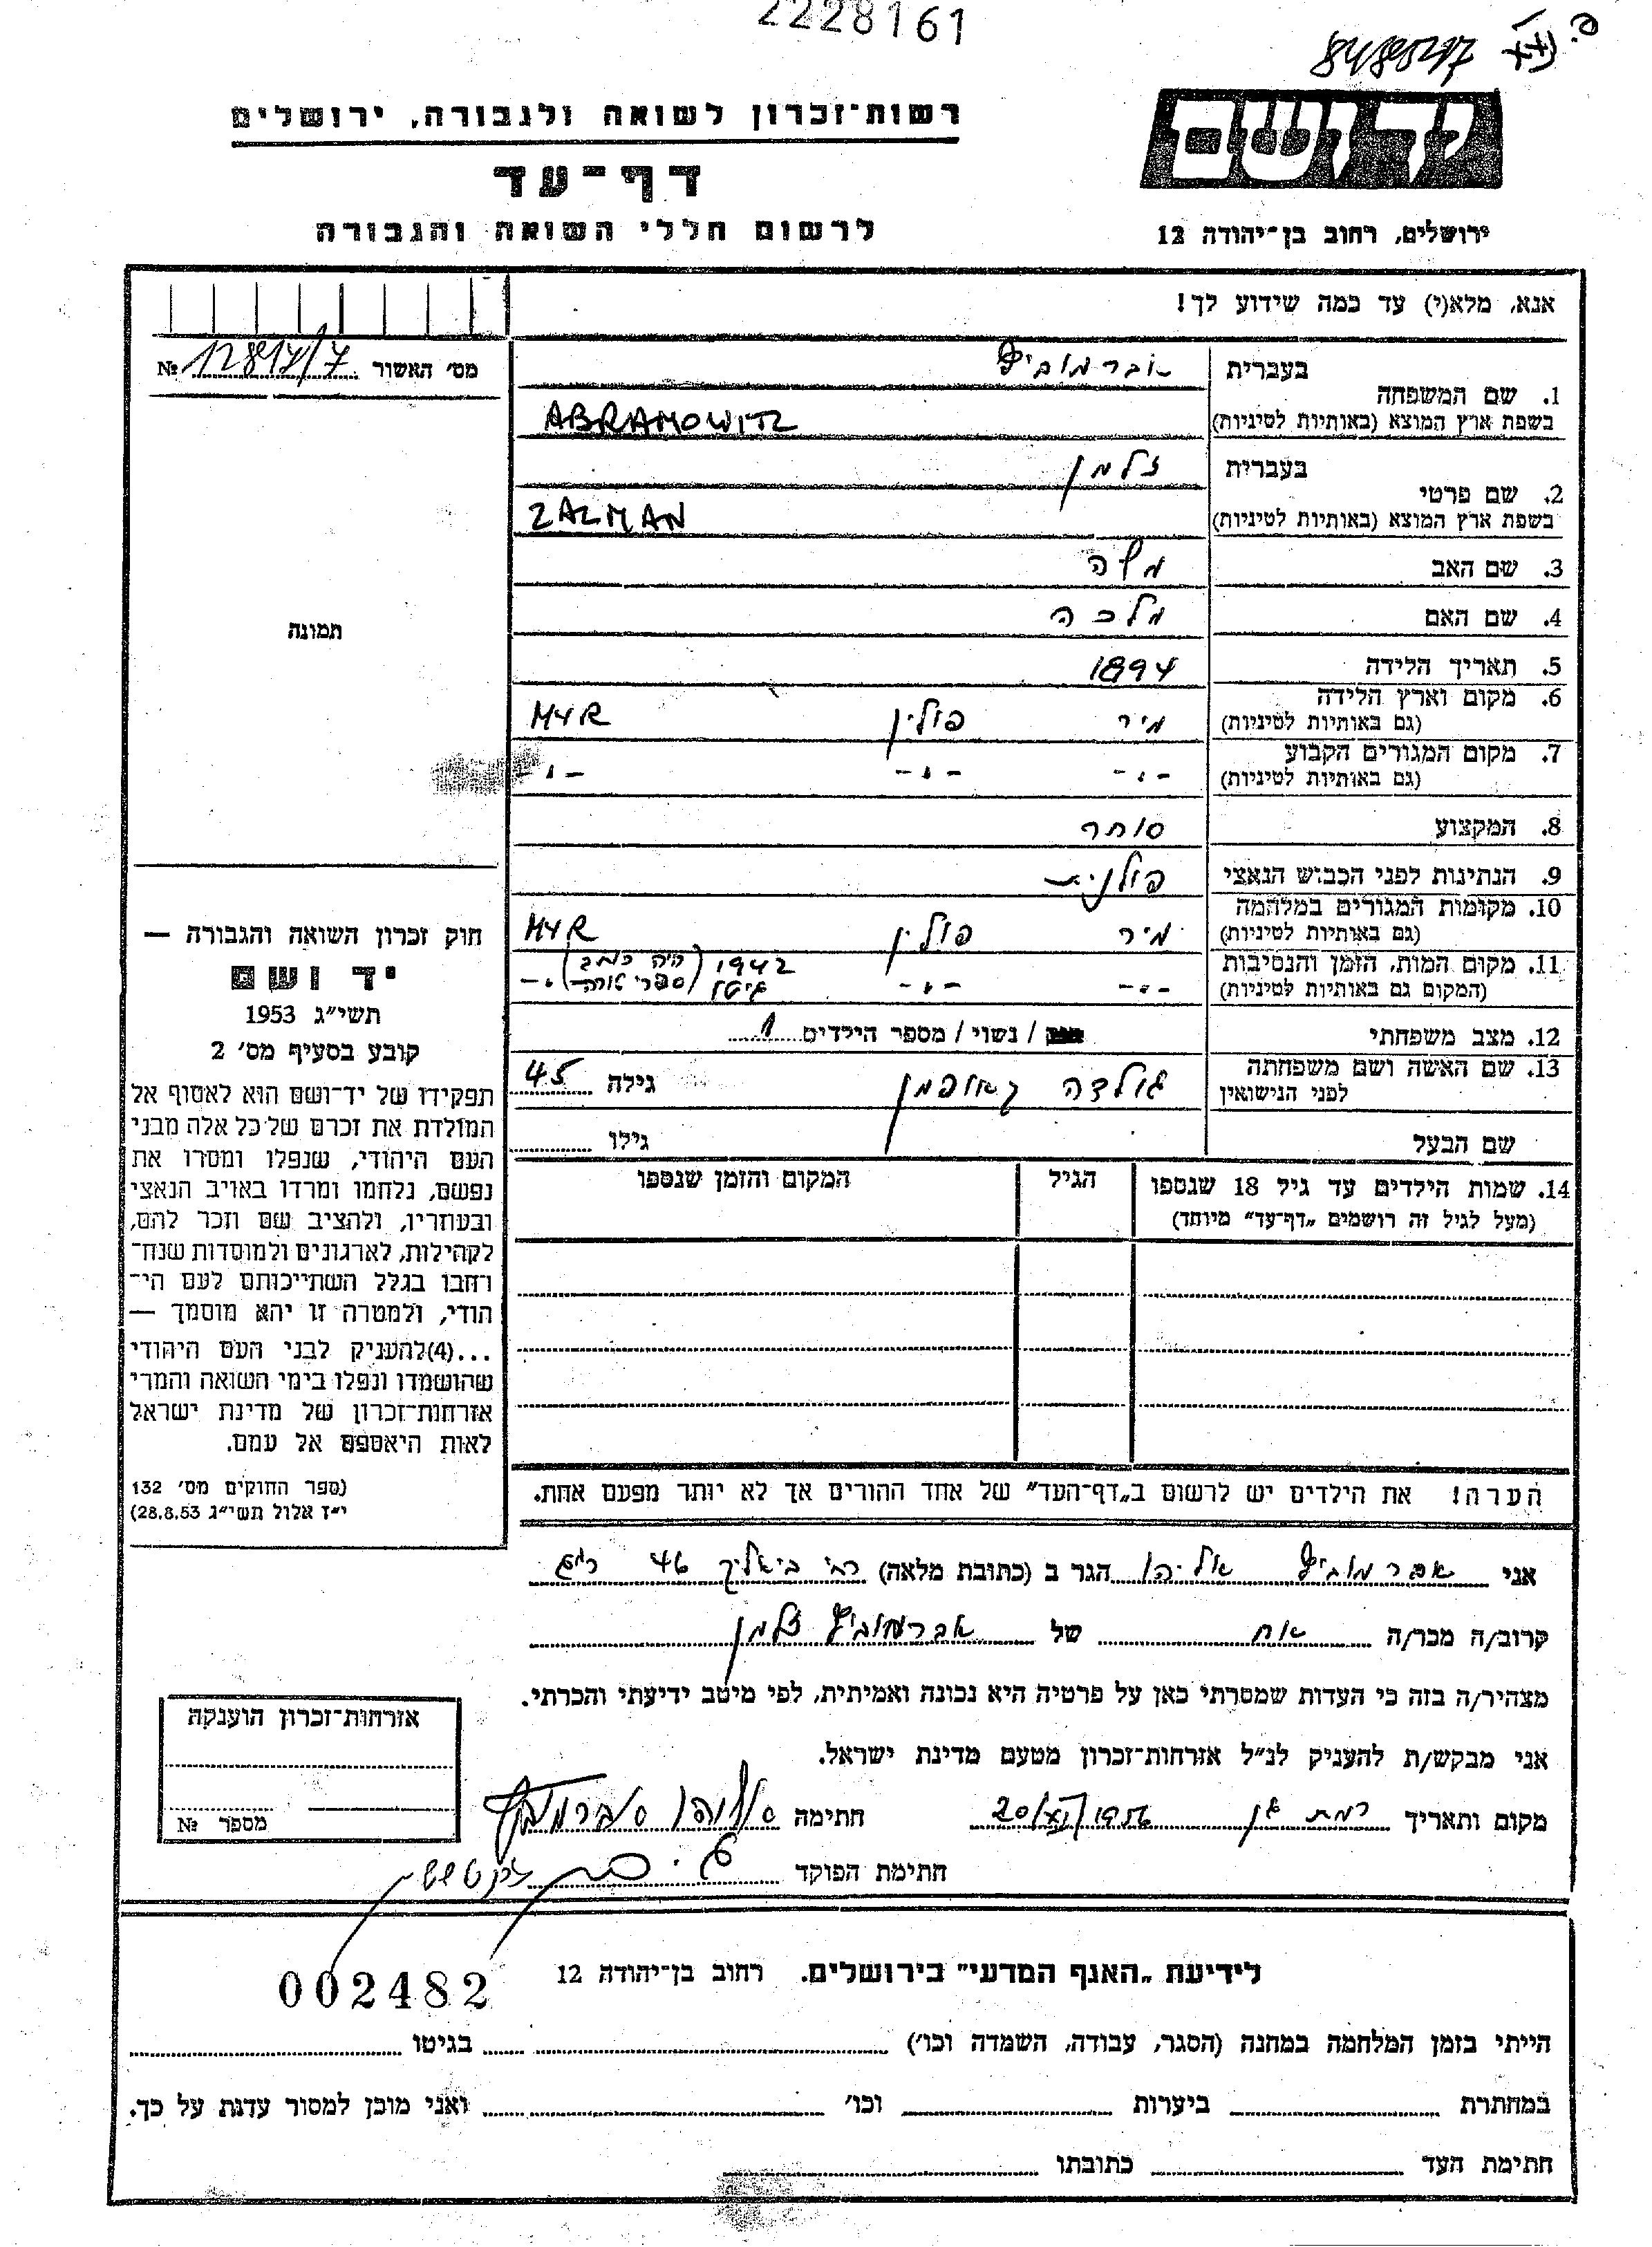 2228161
רשות־זכרון לשואה ולגבורה, ירושלים
דף־עד
לרשום חללי השואה והגבורה
ידושם
ירושלים, רחוב בן־יהודה 12
אנא, מלא(י) עד כמה שידוע לך!
מס׳ האשור №
1. שם המשפחה
בעברית אברמוביץ
בשפת ארץ המוצא (באותיות לטיניות) ABRAMOWITZ
2. שם פרטי
בעברית זלמן
בשפת ארץ המוצא (באותיות לטיניות) ZALMAN
3. שם האב משה
4. שם האם מלכה
5. תאריך הלידה 1894
6. מקום וארץ הלידה
(גם באותיות לטיניות) מיר פולין MYR
7. מקום המגורים הקבוע
(גם באותיות לטיניות) -"- -"- -"-
8. המקצוע סוחר
9. הנתינות לפני הכבוש הנאצי פולנית
10. מקומות המגורים במלחמה
(גם באותיות לטיניות) מיר פולין MYR
11. מקום המות, הזמן והנסיבות 1942 (היה כותב
(המקום גם באותיות לטיניות) -"- -"- גיטו ספרי תורה) -"-
12. מצב משפחתי / נשוי / מספר הילדים 1
13. שם האשה ושם משפחתה
לפני הנישואין גולדה קאופמן גילה 45
שם הבעל גילו
14. שמות הילדים עד גיל 18 שנספו הגיל המקום והזמן שנספו
(מעל לגיל זה רושמים „דף־עד” מיוחד)
הערה! את הילדים יש לרשום ב„דף־העד” של אחד ההורים אך לא יותר מפעם אחת.
תמונה
חוק זכרון השואה והגבורה —
יד ושם
תשי״ג 1953
קובע בסעיף מס׳ 2
תפקידו של יד־ושם הוא לאסוף אל
המולדת את זכרם של כל אלה מבני
העם היהודי, שנפלו ומסרו את
נפשם, נלחמו ומרדו באויב הנאצי
ובעוזריו, ולהציב שם וזכר להם,
לקהילות, לארגונים ולמוסדות שנח־
רחבו בגלל השתייכותם לעם הי־
הודי, ולמטרה זו יהא מוסמך —
...(4)להעניק לבני העם היהודי
שהושמדו ונפלו בימי השואה והמרי
אזרחות־זכרון של מדינת ישראל
לאות היאספם אל עמם.
(ספר החוקים מס׳ 132
י״ז אלול תשי״ג 28.8.53)
אני אברמוביץ אליהו הגר ב (כתובת מלאה) רח׳ ביאליק 46 ר״ג
קרוב/ה מכר/ה אח של אברמוביץ זלמן
מצהיר/ה בזה כי העדות שמסרתי כאן על פרטיה היא נכונה ואמיתית, לפי מיטב ידיעתי והכרתי.
אני מבקש/ת להעניק לנ״ל אזרחות־זכרון מטעם מדינת ישראל.
מקום ותאריך רמת גן 20/XI/1956 חתימה אליהו אברמוביץ
חתימת הפוקד
אזרחות־זכרון הוענקה
מספר №
002482
לידיעת „האגף המדעי” בירושלים. רחוב בן־יהודה 12
הייתי בזמן המלחמה במחנה (הסגר, עבודה, השמדה וכו׳) בגיטו
במחתרת ביערות וכו׳ ואני מוכן למסור עדות על כך.
חתימת העד כתובתו